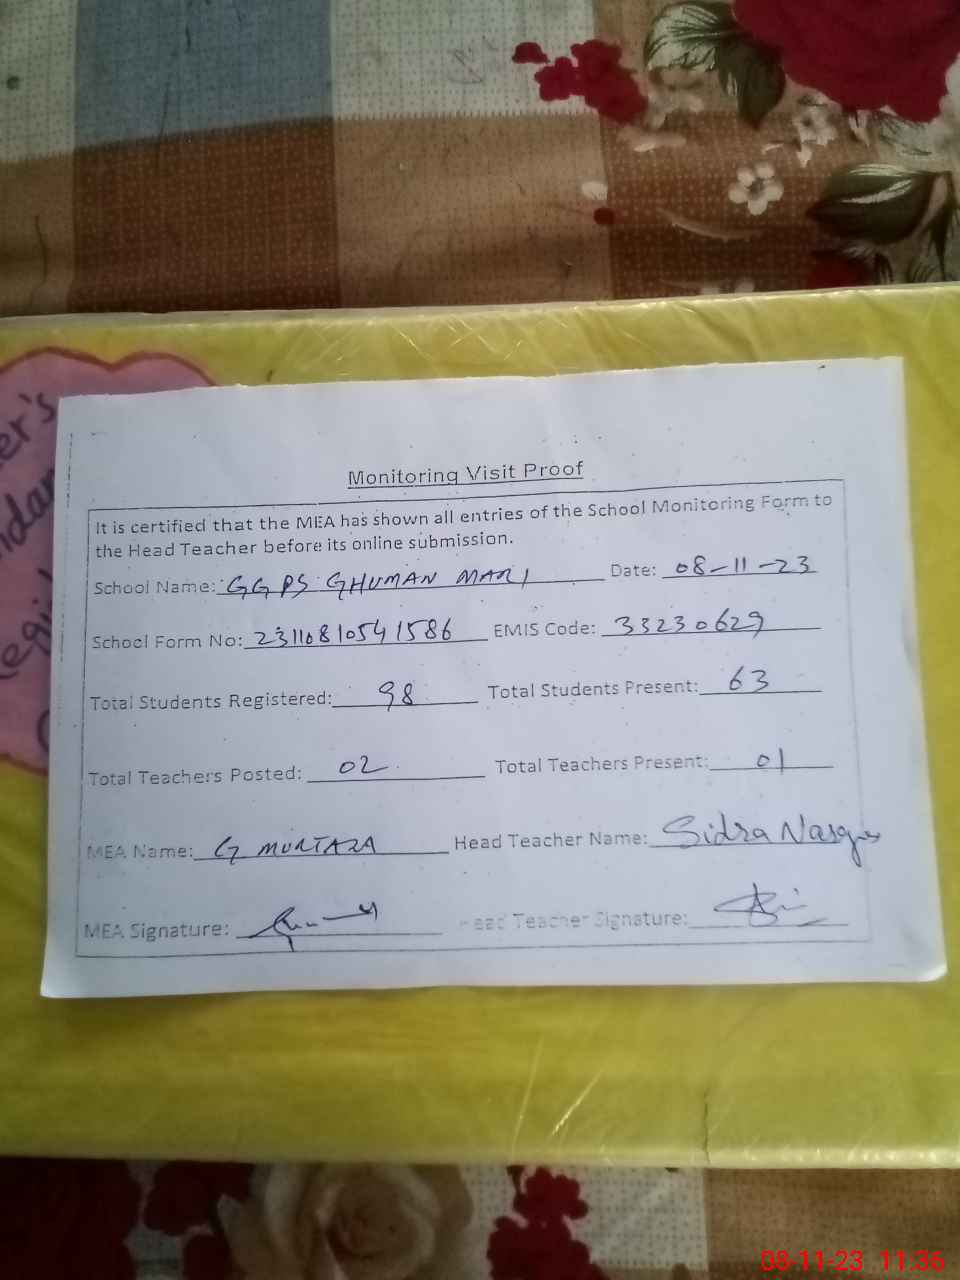 er's
ndan
egi
Monitoring Visit Proof
It is certified that the MEA has shown all entries of the School Monitoring Form to
the Head Teacher before its online submission.
School Name: GGPS GHUMAN MARI Date: 08-11-23
School Form No: 2311081054 1586 EMIS Code: 33230629
Total Students Registered: 98 Total Students Present: 63
Total Teachers Posted: 02 Total Teachers Present: 01
MEA Name: G MURTAZA Head Teacher Name: Sidra
MEA Signature: Head Teacher Signature:
08-11-23 11:36